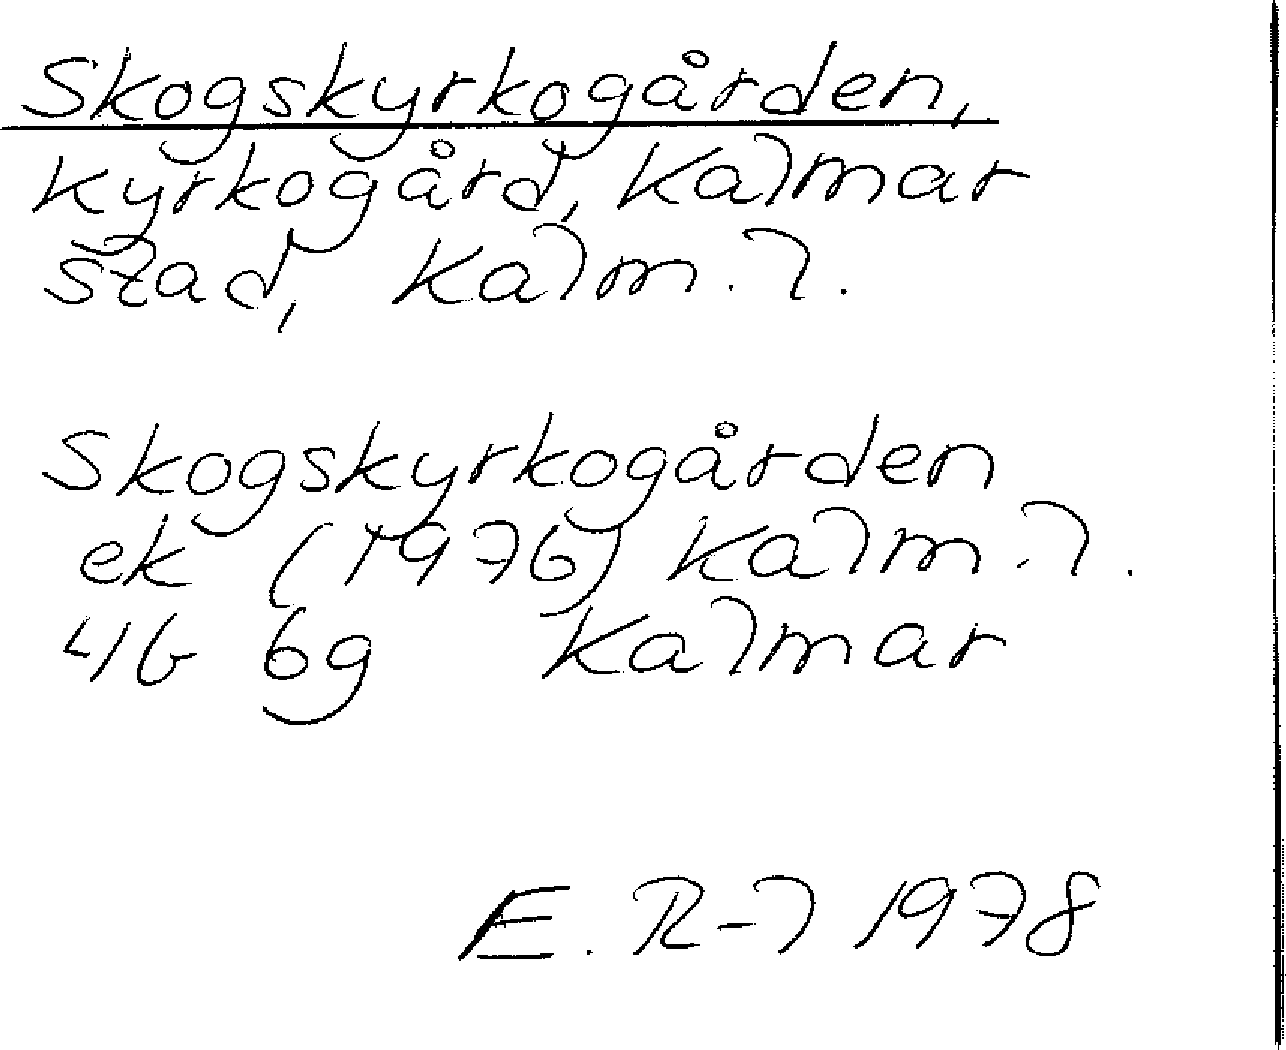 Skogskyrkogården,
kyrkogård, Kalmar
stad, Kalm. l.
Skogskyrkogården
ek (1976) Kalm. l.
4G 6g Kalmar
E. R-l 1978